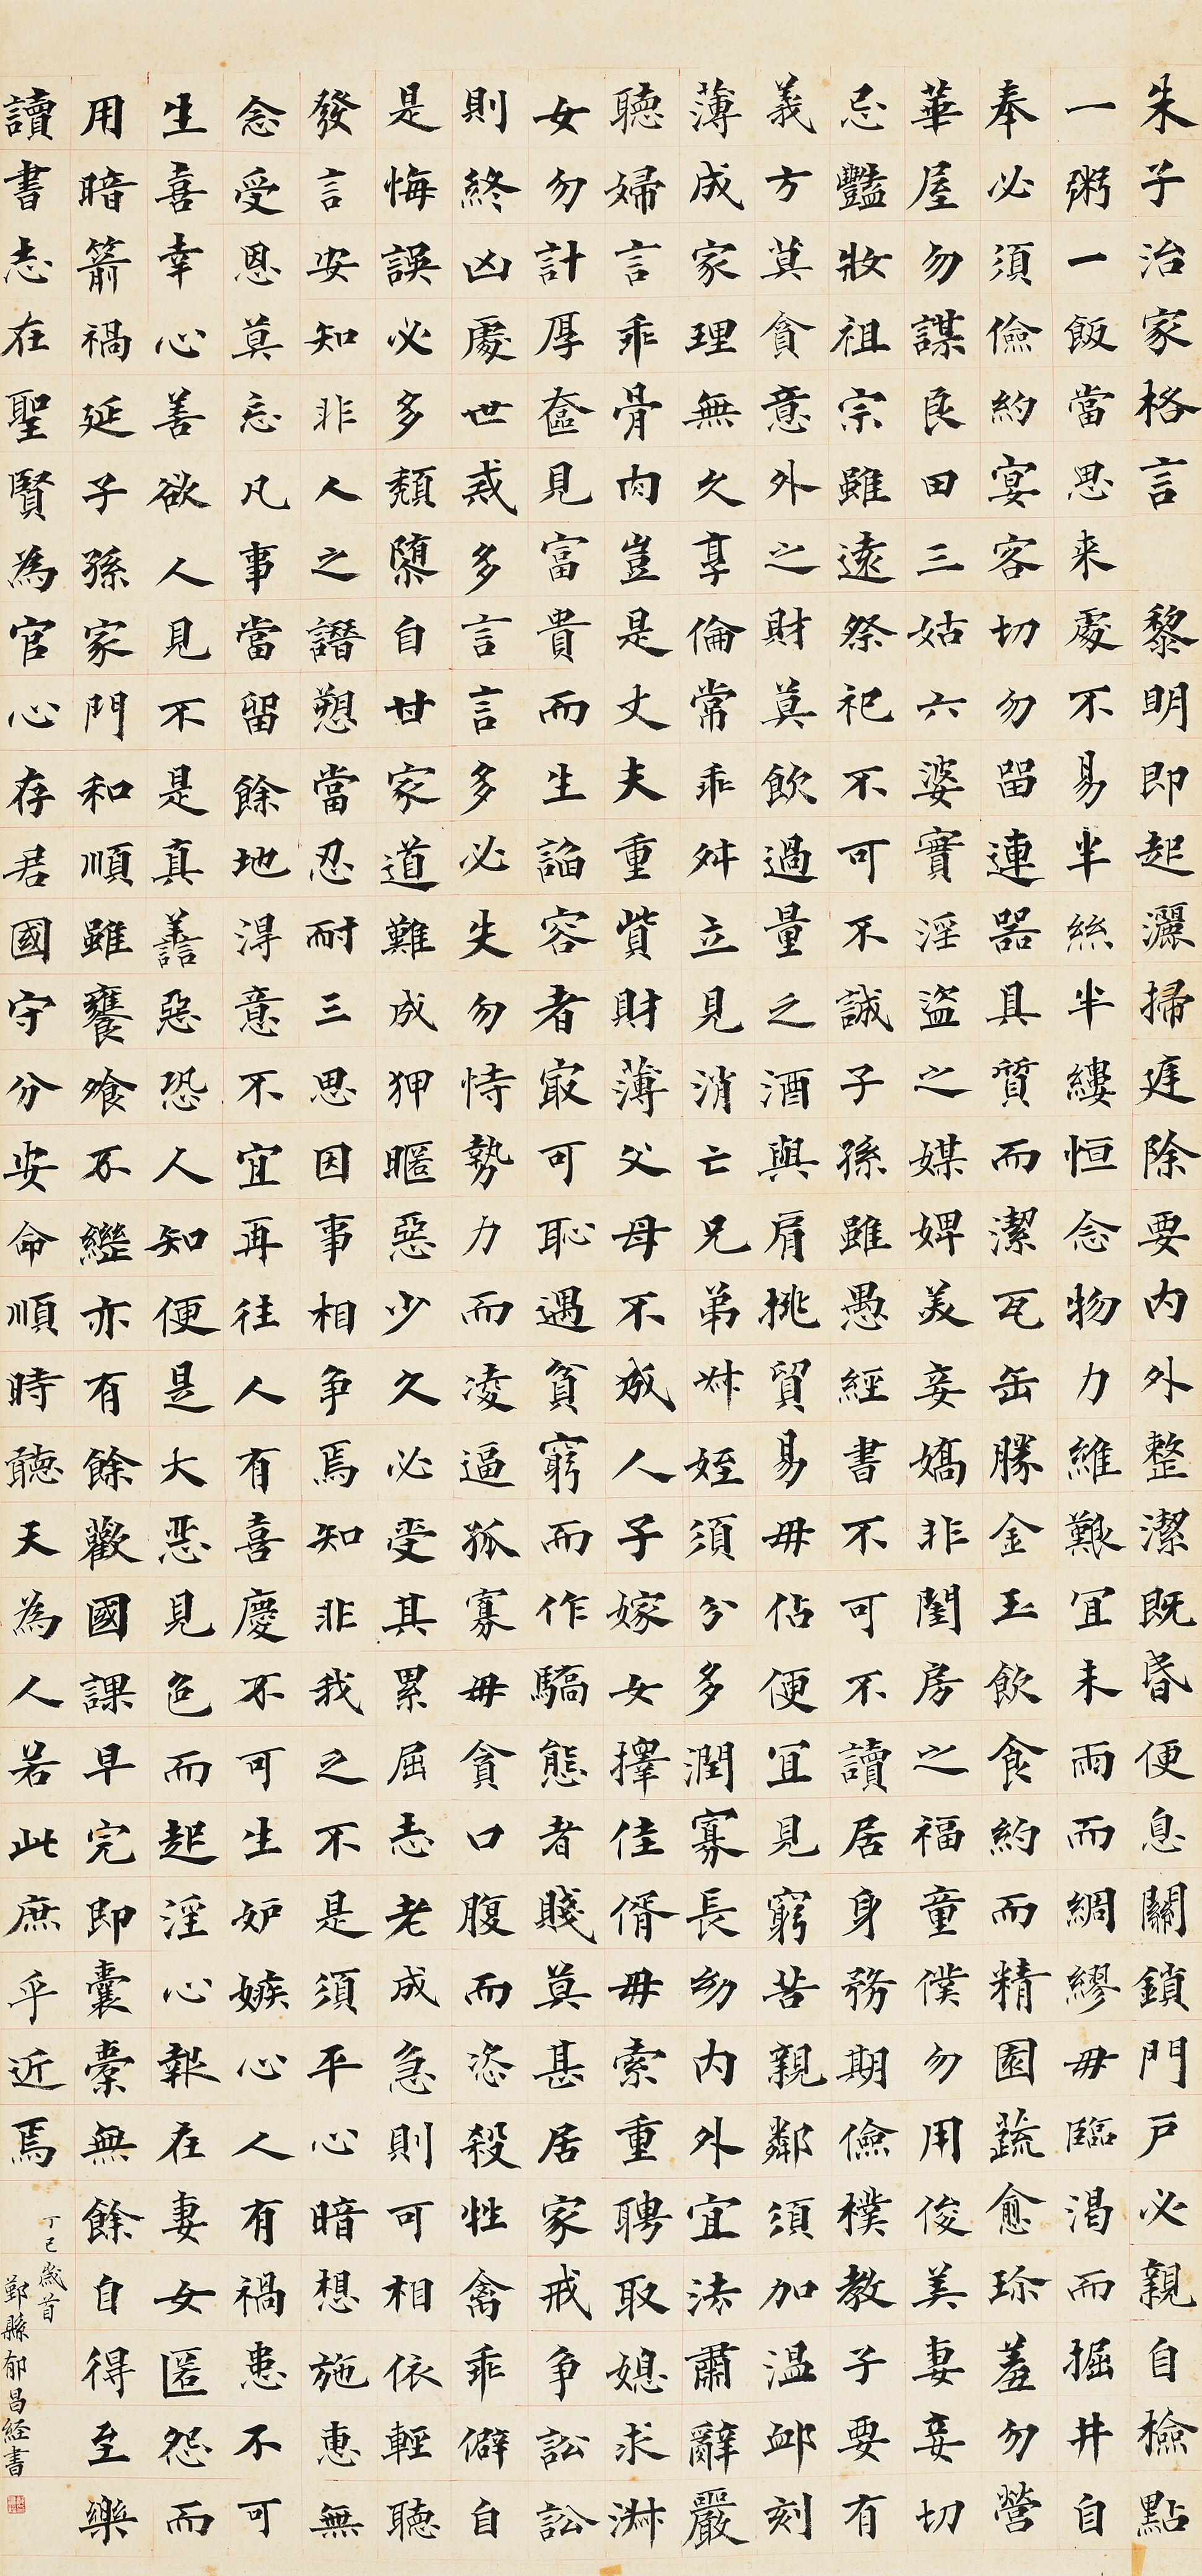 朱子治家格言　黎明即起灑掃庭除要內外整潔既昏便息關鎖門戶必親自檢點
一粥一飯當思来處不易半絲半縷恒念物力維艱宜未雨而綢繆毋臨渴而掘井自
奉必須儉約宴客切勿留連器具質而潔瓦缶勝金玉飲食約而精園蔬愈珍羞勿營
華屋勿謀良田三姑六婆實淫盜之媒婢美妾嬌非閨房之福童僕勿用俊美妻妾切
忌豔妝祖宗雖遠祭祀不可不誠子孫雖愚經書不可不讀居身務期儉樸教子要有
義方莫貪意外之財莫飲過量之酒與肩挑貿易毋佔便宜見窮苦親鄰須加温卹刻
薄成家理無久享倫常乖舛立見消亡兄弟叔姪須分多潤寡長幼內外宜法肅辭嚴
聽婦言乖骨肉豈是丈夫重貲財薄父母不成人子嫁女擇佳偦毋索重聘取媳求淑
女勿計厚奩見富貴而生諂容者最可恥遇貧窮而作驕態者賤莫甚居家戒争訟訟
則終凶處世戒多言言多必失勿恃勢力而凌逼孤寡毋貪口腹而恣殺牲禽乖僻自
是悔誤必多頹隳自甘家道難成狎暱惡少久必受其累屈志老成急則可相依輕聽
發言安知非人之譖愬當忍耐三思因事相争焉知非我之不是須平心暗想施惠無
念受恩莫忘凡事當留餘地得意不宜再往人有喜慶不可生妒嫉心人有禍患不可
生喜幸心善欲人見不是真譱惡恐人知便是大恶見色而起淫心報在妻女匿怨而
用暗箭禍延子孫家門和順雖饔飧不繼亦有餘歡國課早完即囊橐無餘自得至樂
讀書志在聖賢為官心存君國守分安命順時聽天為人若此庶乎近焉
丁巳歲首
鄞縣郁昌経書